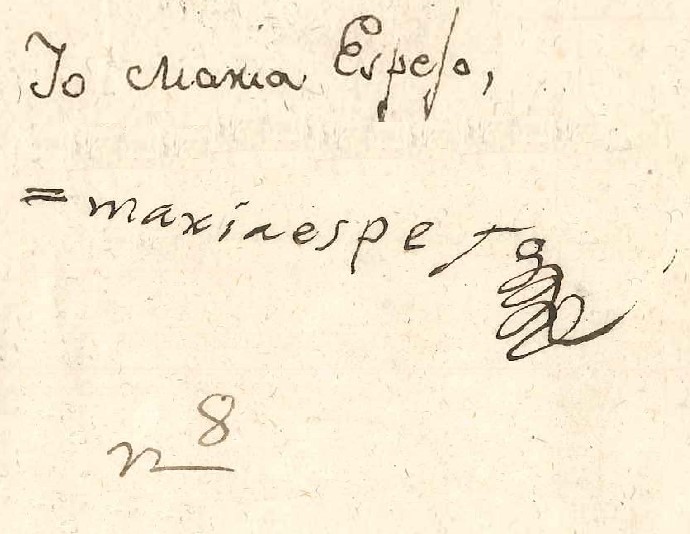 Io Maria Espeso,
= maria espeso
n 8